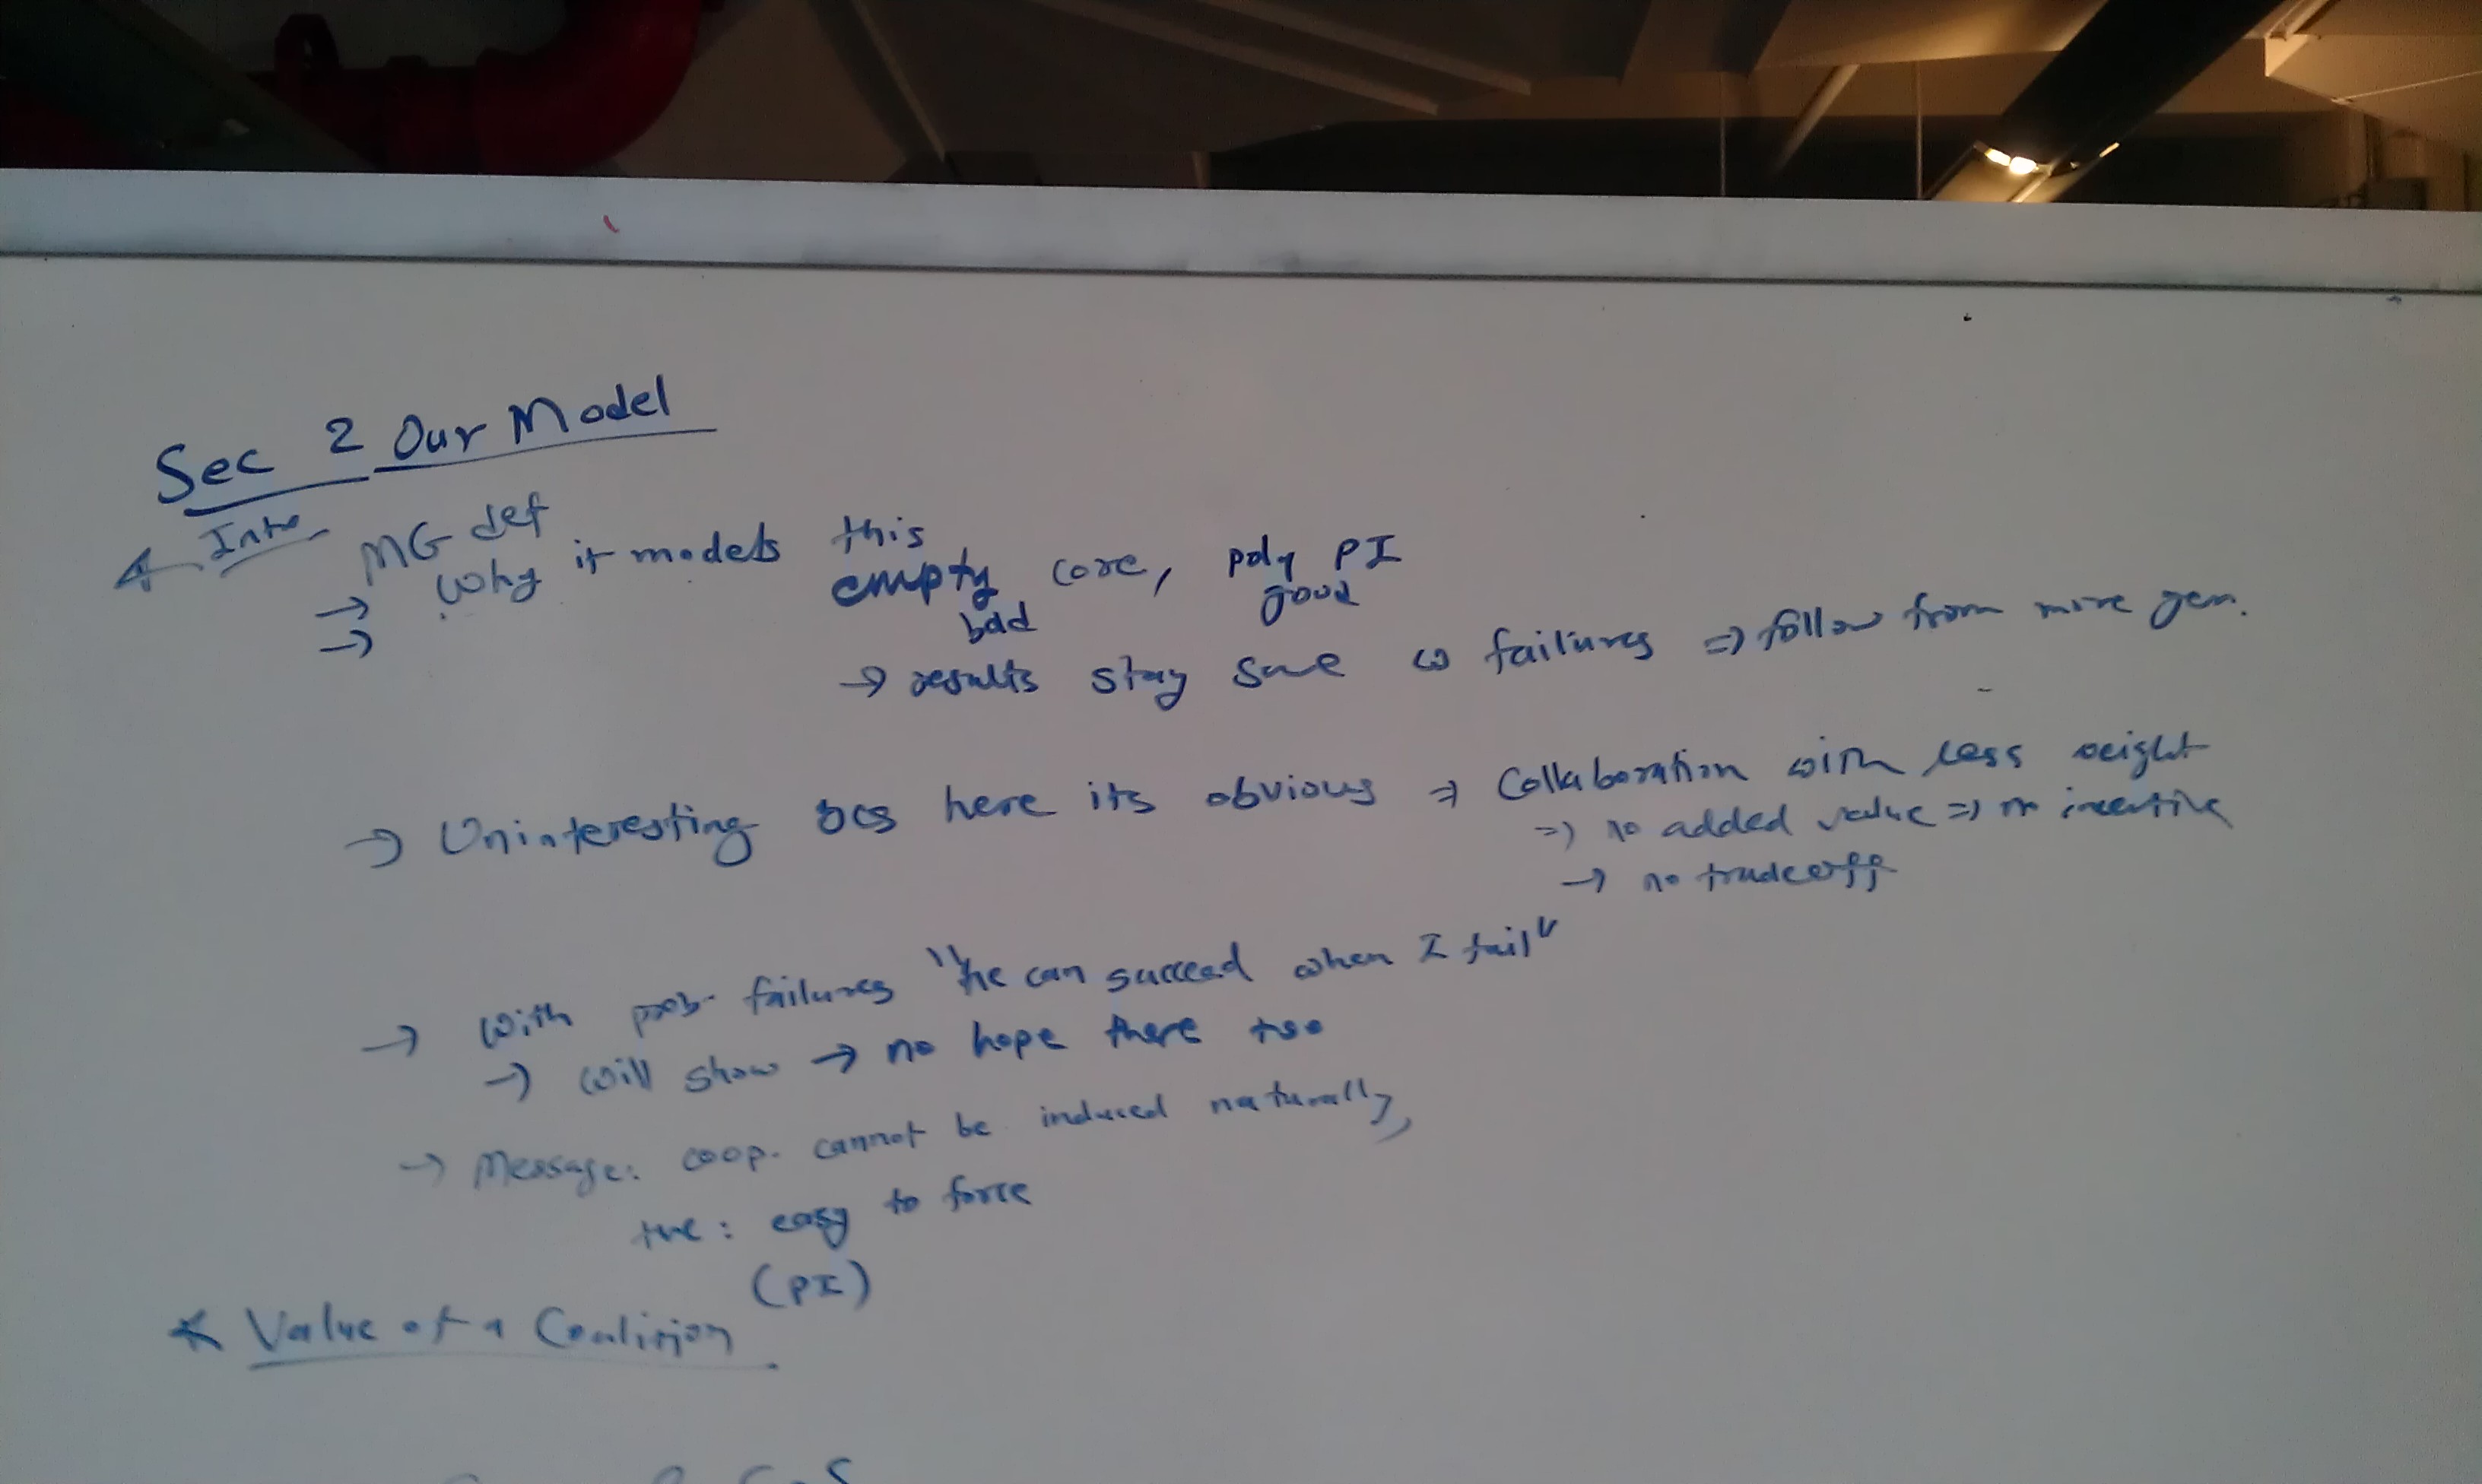 Sec 2 Our Model
Intro
MG def
→ Why it models this
→ empty core, poly PI
bad good
→ results stay same w failures ⇒ follow from more gen.
→ Uninteresting bcs here its obvious ⇒ Collaboration with less weight
⇒ no added value ⇒ no incentive
→ no tradeoff
→ With prob. failures "he can succeed when I fail"
→ Will show → no hope there too
→ Message: coop. cannot be induced naturally,
+ve: easy to force
(PI)
* Value of a Coalition